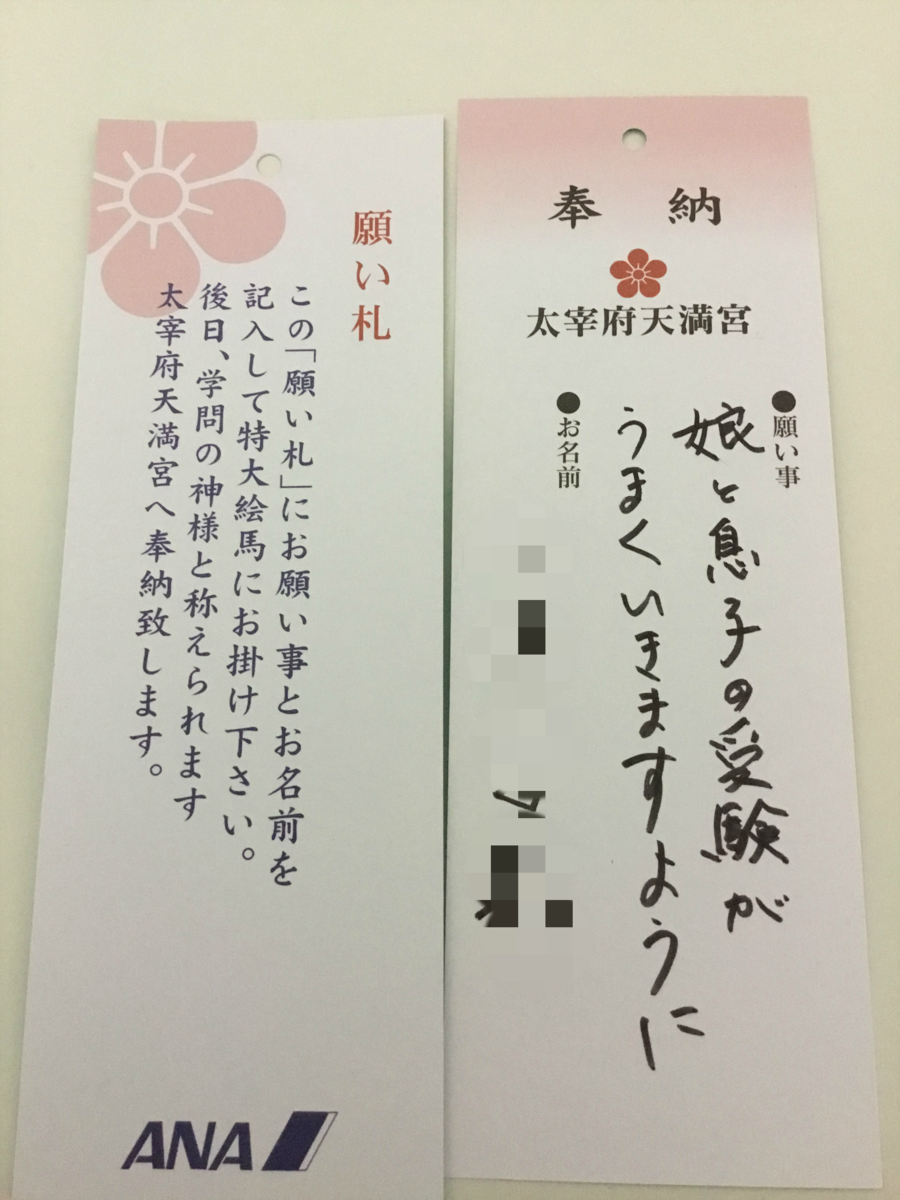 願い札
この「願い札」にお願い事とお名前を
記入して特大絵馬にお掛け下さい。
後日、学問の神様と称えられます
太宰府天満宮へ奉納致します。
ANA
奉納
太宰府天満宮
●願い事
娘と息子の受験が
うまくいきますように
●お名前